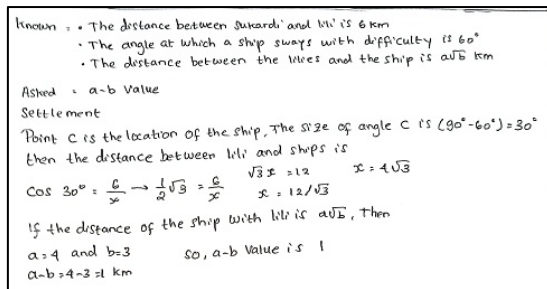 Known : • The distance between Sukardi and lili is 6 km
• The angle at which a ship sways with difficulty is 60°
• The distance between the lilies and the ship is a√b km
Asked : a-b value
Settlement
Point C is the location of the ship, The size of angle C is (90°-60°)=30°
then the distance between lili and ships is
cos 30° = 6/x → 1/2√3 = 6/x √3 x = 12 x = 4√3
x = 12/√3
If the distance of the ship with lili is a√b, then
a=4 and b=3 so, a-b value is 1
a-b=4-3=1 km